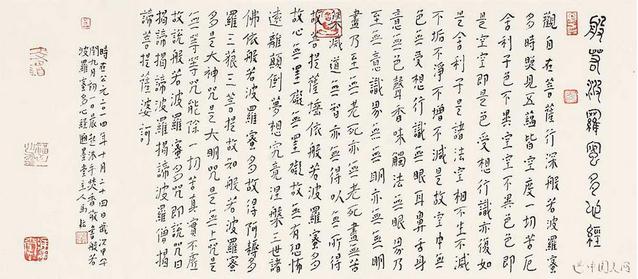 般若波羅蜜多心經
觀自在菩薩行深般若波羅蜜
多時照見五蘊皆空度一切苦厄
舍利子色不異空空不異色色即
是空空即是色受想行識亦復如
是舍利子是諸法空相不生不滅
不垢不淨不增不減是故空中無
色無受想行識無眼耳鼻舌身
意無色聲香味觸法無眼界乃
至無意識界無無明亦無無明
盡乃至無老死亦無老死盡無苦
集滅道無智亦無得以無所得
故菩提薩埵依般若波羅蜜多
故心無罣礙無罣礙故無有恐怖
遠離顛倒夢想究竟涅槃三世諸
佛依般若波羅蜜多故得阿耨多
羅三藐三菩提故知般若波羅蜜多
是大神咒是大明咒是無上咒是
無等等咒能除一切苦真實不虛
故說般若波羅蜜多咒即說咒曰
揭諦揭諦波羅揭諦波羅僧揭
諦菩提薩婆訶
時在公元二〇一四年十月二十四日歲次甲午
閏九月初一日晨起淨手焚香敬書般若
波羅蜜多心經墨堂主人